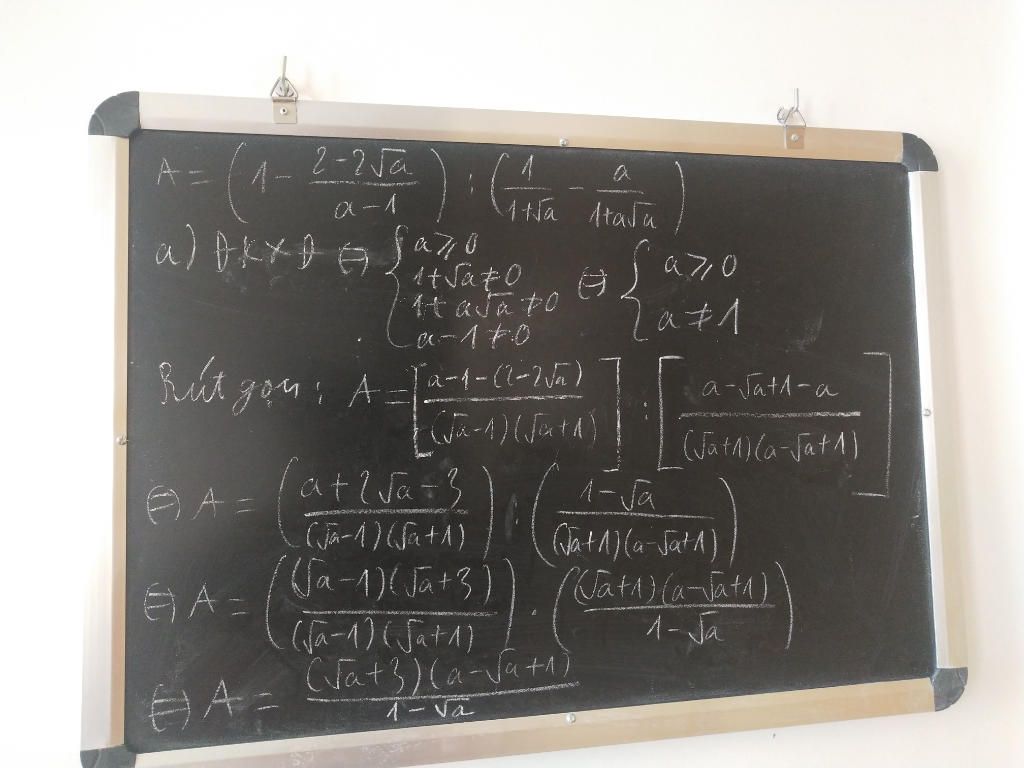 A = (1 - \frac{2-2\sqrt{a}}{a-1}) : (\frac{1}{1+\sqrt{a}} - \frac{a}{1+a\sqrt{a}})
a) ĐKXĐ ⇔ { a ⩾ 0 ; 1+√a ≠ 0 ; 1+a√a ≠ 0 ; a-1 ≠ 0 ⇔ { a ⩾ 0 ; a ≠ 1
Rút gọn: A = [\frac{a-1-(2-2\sqrt{a})}{(\sqrt{a}-1)(\sqrt{a}+1)}] : [\frac{a-\sqrt{a}+1-a}{(\sqrt{a}+1)(a-\sqrt{a}+1)}]
⇔ A = (\frac{a+2\sqrt{a}-3}{(\sqrt{a}-1)(\sqrt{a}+1)}) : (\frac{1-\sqrt{a}}{(\sqrt{a}+1)(a-\sqrt{a}+1)})
⇔ A = (\frac{(\sqrt{a}-1)(\sqrt{a}+3)}{(\sqrt{a}-1)(\sqrt{a}+1)}) . (\frac{(\sqrt{a}+1)(a-\sqrt{a}+1)}{1-\sqrt{a}})
⇔ A = \frac{(\sqrt{a}+3)(a-\sqrt{a}+1)}{1-\sqrt{a}}